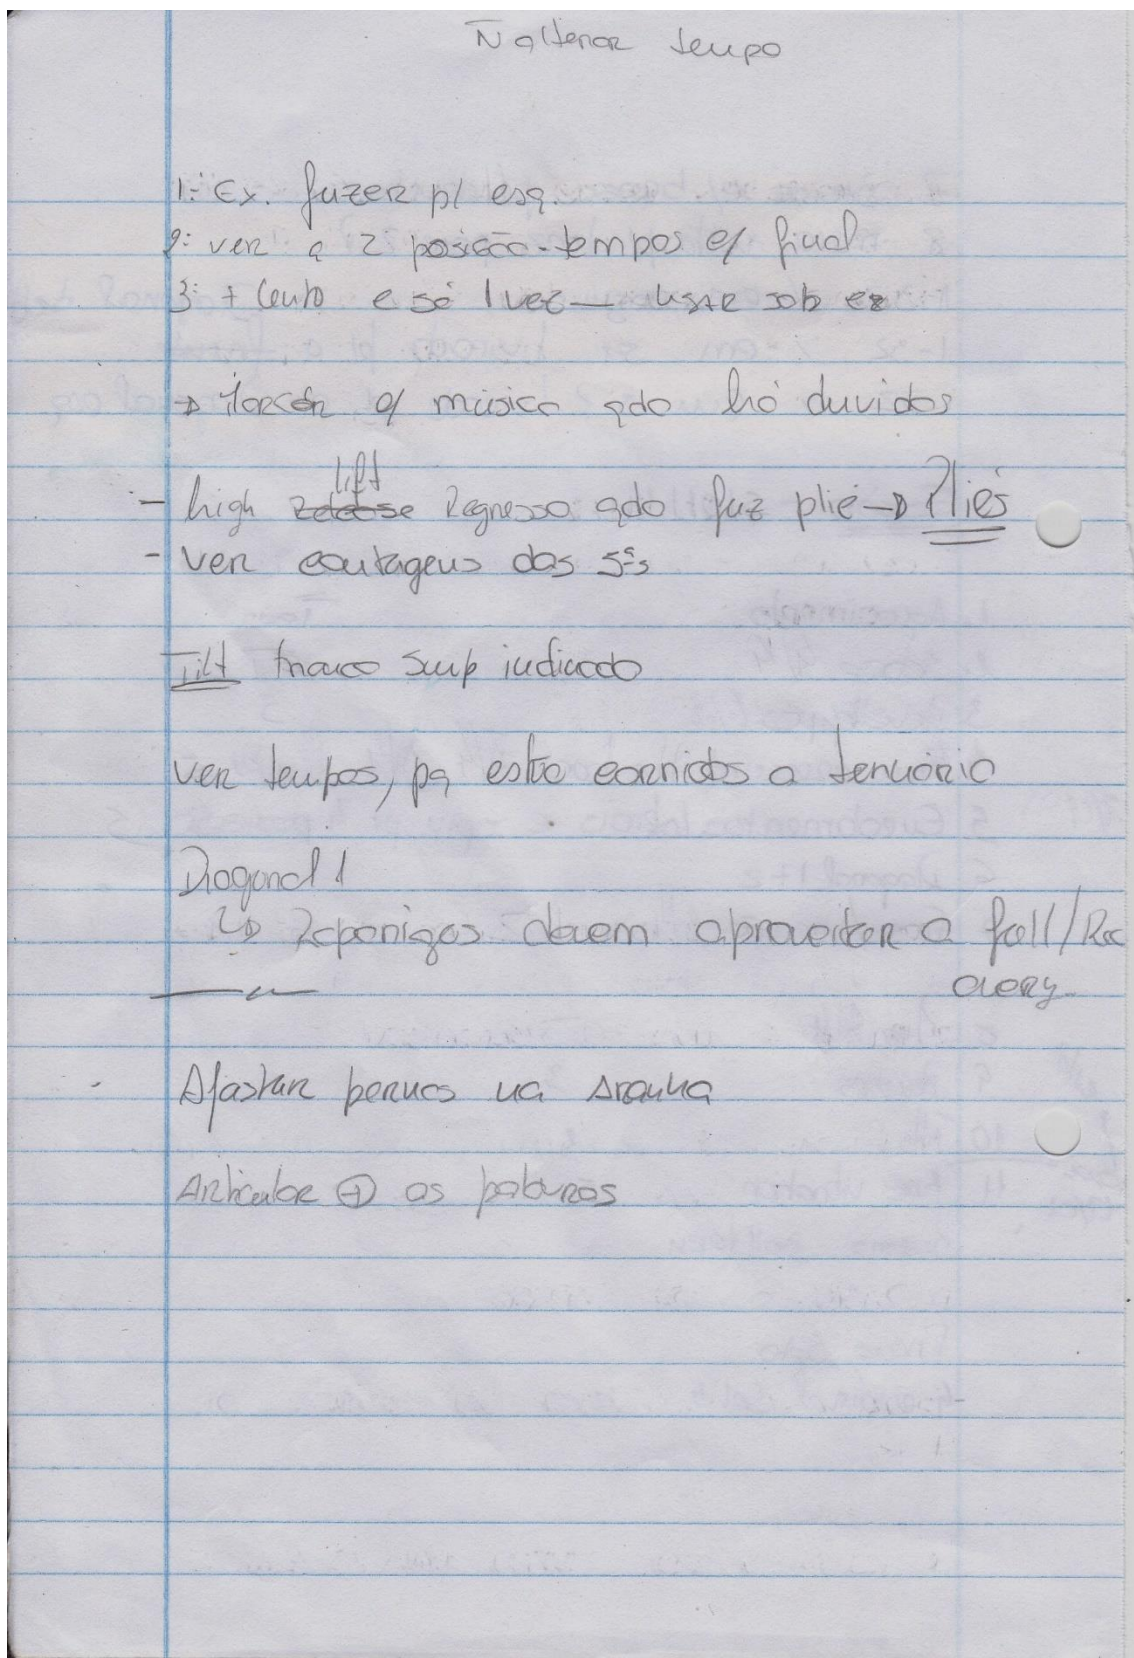 Ñ alterar tempo
1º Ex. fazer p/ esq.
2º ver a 2 posição - tempos e/ final
3º + lento e só 1 vez — usar sob ex
→ Marcar c/ música qdo há duvidas
- high lift Regresso qdo faz plié → Pliés
- ver contagens das 5ªs
Tilt tronco semp indicado
ver tempos, pq estão corridos a
Diagonal 1
↳ Raparigas devem aproveitar a fall/Rec
overy
Afastar pernas na Aranha
Articular + as palavras